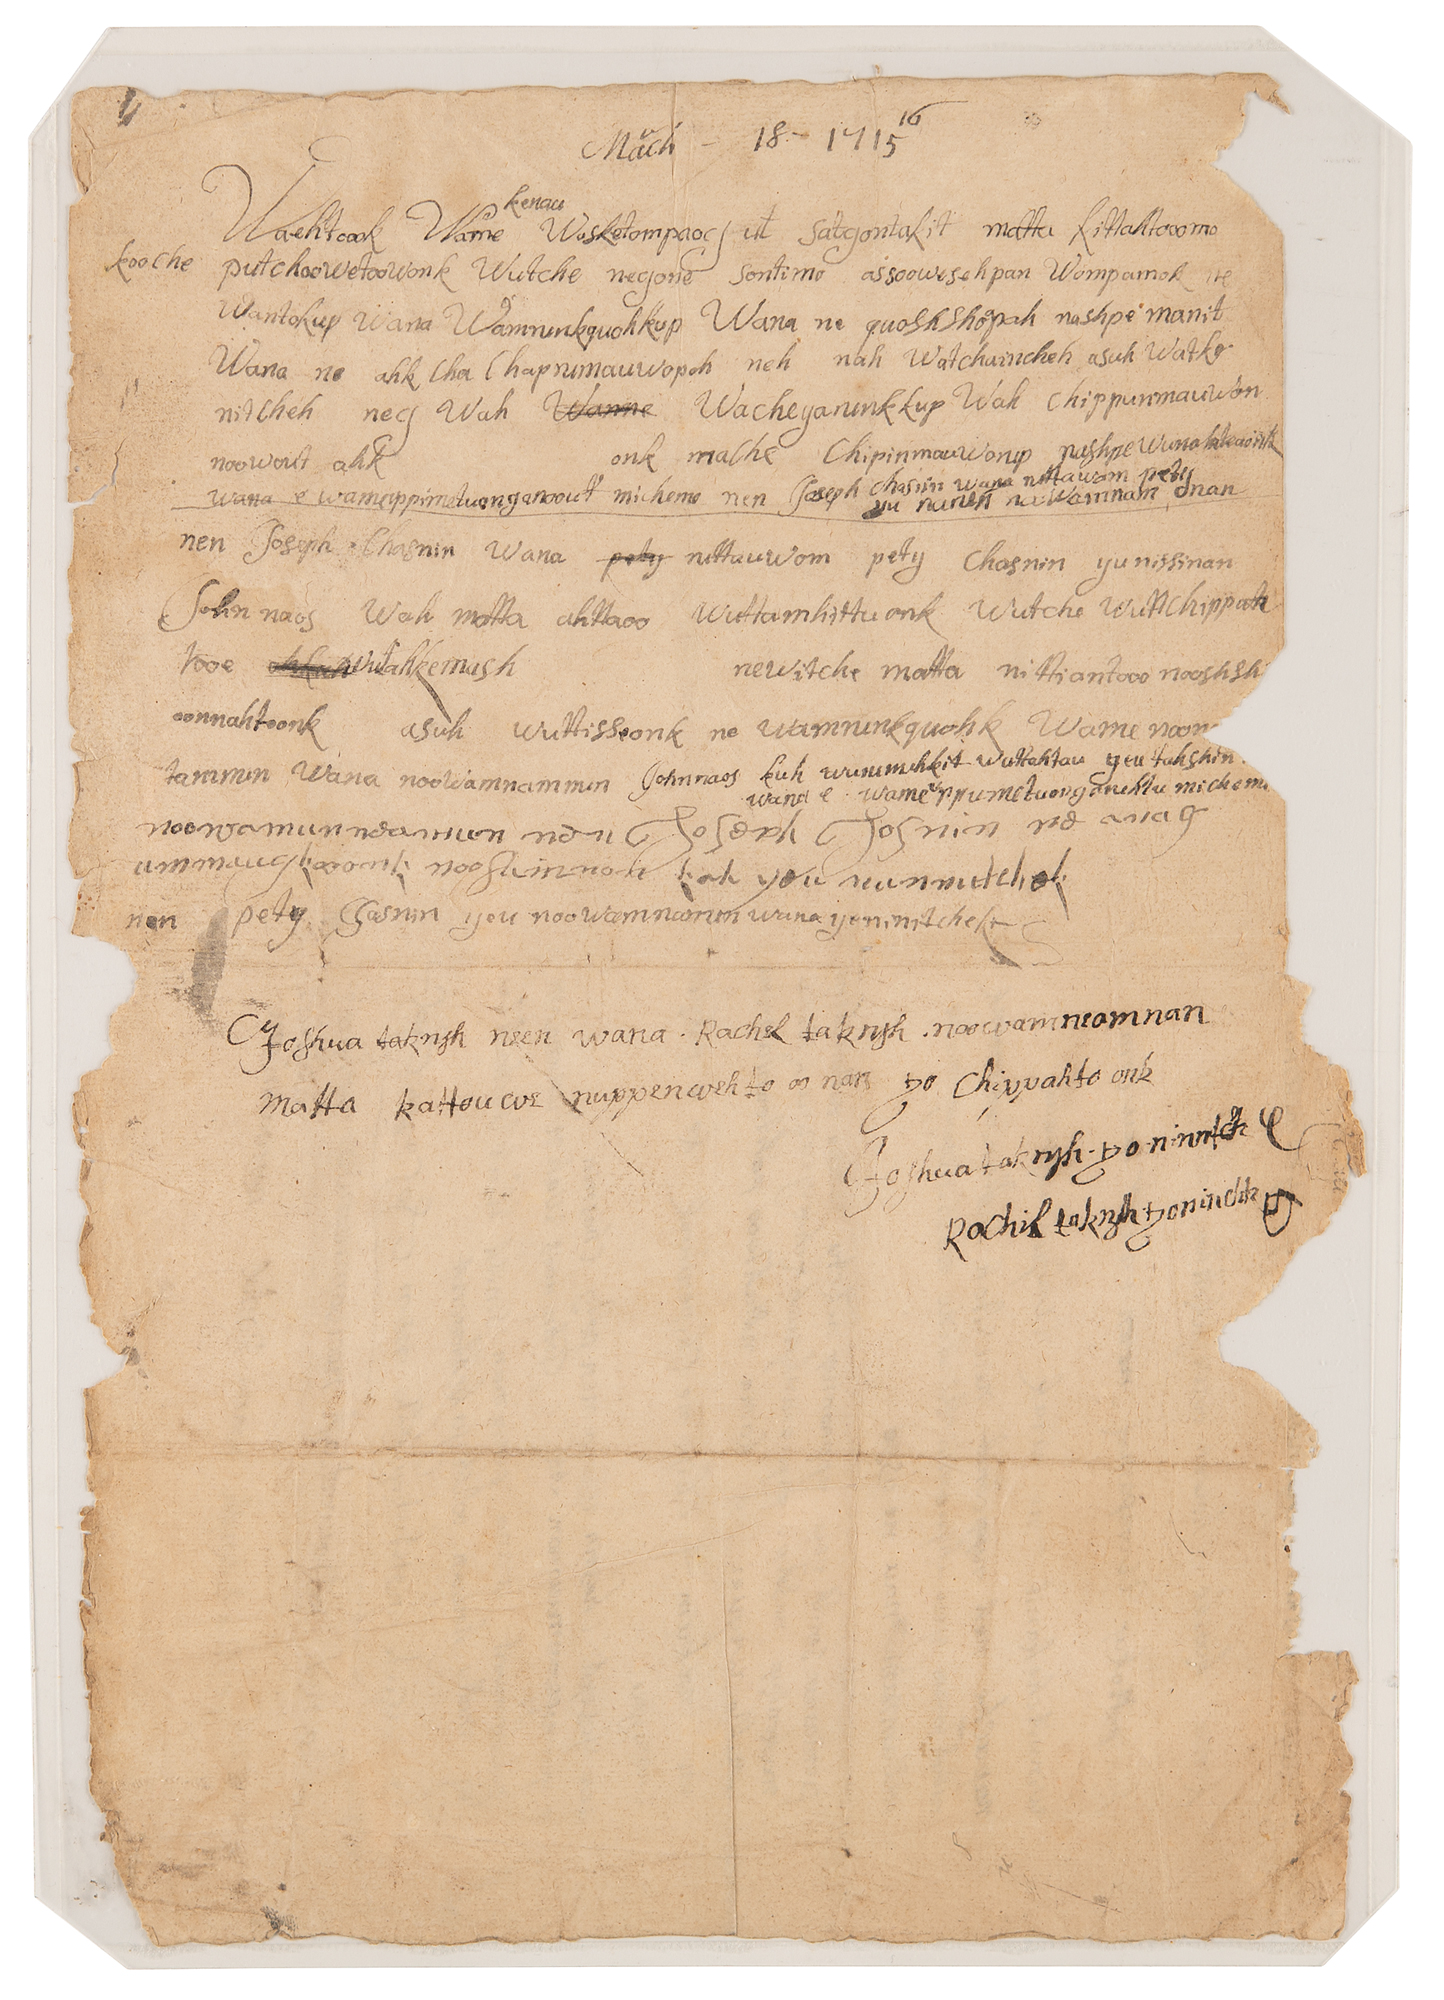 March - 18 - 1715
16
kenau
Waehtook Wame Wosketompaog ut Satgontakit matta kittahtooomo
kooche putchoowetoowonk Wutche negone sontimo assoowesehpan Wompamok ne
Wantokup Wana Wamnunkquohkup Wana ne quoshshopah nashpe manit
Wana ne ahk cha Chapnumauwopah neh nah Watchuincheh asuh Watke
nitcheh neg Wah Wame Wacheyanunkkup Wah Chippunmauwon
noowout ahk onk mache Chipinmauwonup nashpe
wana e wameppimetuonganoout michemo nen Joseph Chasnin wana nittauwom pety
yu nunen noowamnam onan
nen Joseph Chasnin Wana pety nittauwom pety Chasnin yu nissinan
John naos Wah matta ahttaoo Wuttamhittuonk Wutche Wuttchippah
tooe Wutahkemush newitche matta nittiantooo nooshsh
oonnahtoonk asuh wuttisseonk ne wamnunkquohk Wame noon
tammun Wana noowamnammun John naos kuh wunnuhkit wuttahtau yeu tahshin
wana e wame ppumetuonganuhtu michem
noowamunneamun nen Joseph Josnin ne anag
ummaugkooonk nooshunnoh kah you nunnutchek
nen pety Chasnin yeu noowamnamun wana yeuninitchek
Joshua taknish neen wana Rachel taknish noowamneamnan
matta kattoucwe nuppenwehto oo nan yo Chippahto onk
Joshua taknish yo ninnitch
Rachil taknish yo ninchk